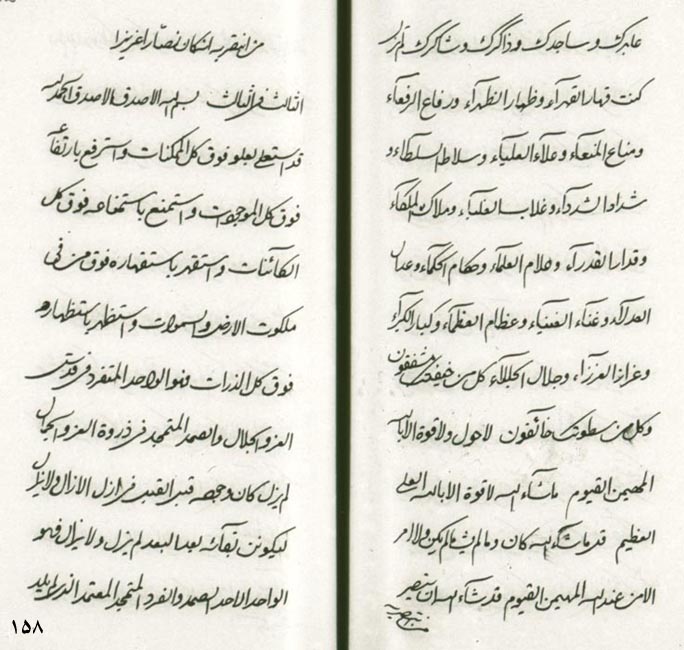 عابدك و ساجدك و ذاكرك و شاكرك لم تزل
كنت قهار القهراء و ظهار الظهراء و رفاع الرفعاء
و مناع المنعاء و علاء العلياء و سلاط السلطاء و
شداد الشدداء و غلاب الغلباء و ملاك الملكاء
و قدار القدراء و علام العلماء و حكام الحكماء و عدال
العدلاء و غناء الغنياء و عظام العظماء و كبار الكبراء
و عزاز العززاء و جلال الجللاء كل من خيفتك مشفقون
و كل من سطوتك خائفون لا حول و لا قوة الا بالله
المهيمن القيوم ما شاء الله لا قوة الا بالله العلي
العظيم قد ما شاء الله كان و ما لم يشأ لم يكن و لا امر
الا من عند الله المهيمن القيوم قد شاء الله ان ينتصر
من انتصر به انه كان نصارا عزيزا
الثالث في الثالث بسم الله الاصدق الاصدق الحمد لله
قد استعلى بعلوه فوق كل الممكنات و استرفع بارتفاعه
فوق كل الموجودات و استمنع باستمناعه فوق كل
الكائنات و استقهر باستقهاره فوق من في
ملكوت الارض و السموات و استظهر باستظهاره
فوق كل الذرات فهو الواحد المتفرد في قدس
العز و الجلال و الصمد المتمجد في ذروة العز و الجمال
لم يزل كان وجوده قبل القبل في ازل الازال و لا يزال
ليكونن بقائه بعد البعد لم يزل و لا يزال فهو
الواحد الاحد الصمد و الفرد المتمجد المعتمد الذي لم يلد
١٥٨